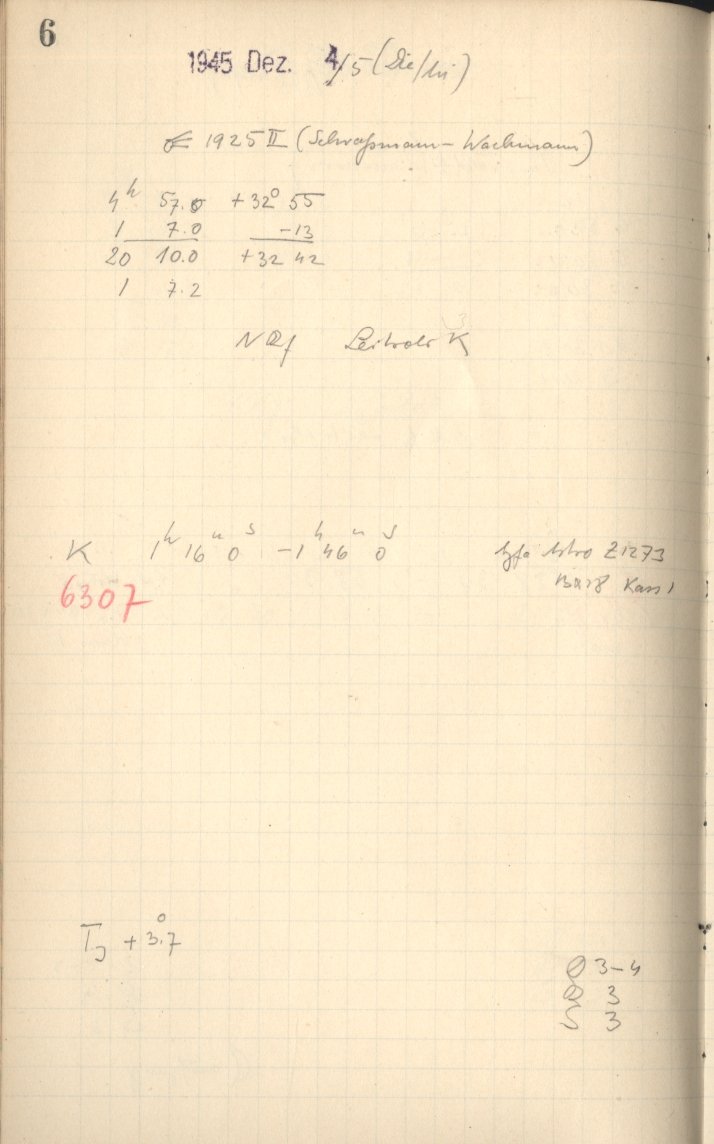 6
1945 Dez. 4/5 (Die/Mi)
1925 II (Schwaßmann-Wachmann)
4h 57.0 +32° 55
1 7.0 -13
20 10.0 +32 42
1 7.2
K
K 1h 16m 0s -1h 46m 0s Agfa Astro Z1273
6307
Kass 1
T +3.°7
3-4
3
S 3